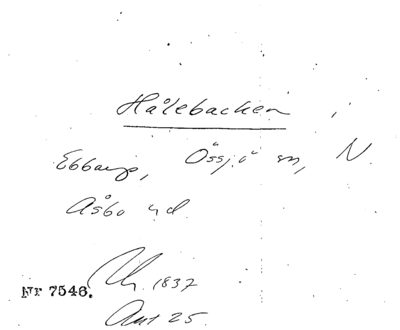 Hålebacken
Ebbarp, Össjö sn, N.
Åsbo hd.
Nr 7546. Uh. 1837
Ant 25